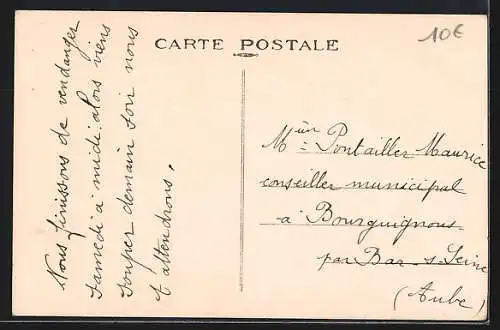 CARTE POSTALE
10€
Nous finissons de vendanger
samedi à midi. alors viens
souper demain soir nous
t'attendrons.
Mr Pontailler Maurice
conseiller municipal
à Bourguignons
par Bar s Seine
(Aube)